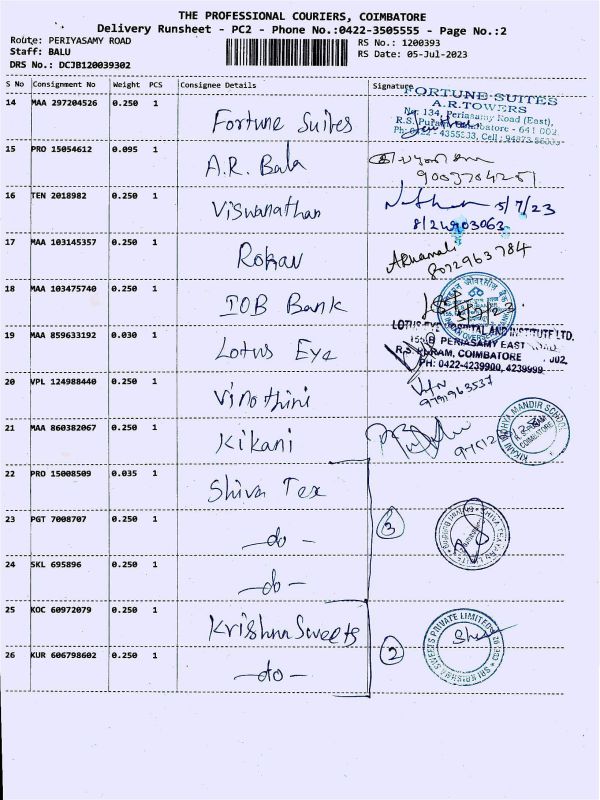 THE PROFESSIONAL COURIERS, COIMBATORE
Delivery Runsheet - PC2 - Phone No.:0422-3505555 - Page No.:2
Route: PERIYASAMY ROAD
RS No.: 1200393
Staff: BALU
RS Date: 05-Jul-2023
DRS No.: DCJB120039302
S No Consignment No Weight PCS Consignee Details Signature
14 MAA 297204526 0.250 1 Fortune Suites
FORTUNE SUITES
A.R.TOWERS
No: 134, Periasamy Road (East),
R.S. Coimbatore - 641 002
Ph: 0422 - 4355533, Cell :
15 PRO 15054612 0.095 1 A.R. Bala
16 TEN 2018982 0.250 1 Viswanathan
5/7/23
17 MAA 103145357 0.250 1
18 MAA 103475740 0.250 1 IOB Bank
19 MAA 859633192 0.030 1 Lotus Eye
LOTUS EYE HOSPITAL AND INSTITUTE LTD.
PERIASAMY EAST ROAD
COIMBATORE
PH: 0422-4239900, 4239999
20 VPL 124988440 0.250 1 Vinothini
21 MAA 860382067 0.250 1 Kikani
KIKANI VIDHYA MANDIR SCHOOL
COIMBATORE
22 PRO 15008509 0.035 1 Shiva Tex
23 PGT 7008707 0.250 1 -do-
3
24 SKL 695896 0.250 1 -do-
25 KOC 60972079 0.250 1 Krishna Sweets
2
SRI KRISHNA SWEETS PRIVATE LIMITED
26 KUR 606798602 0.250 1 -do-